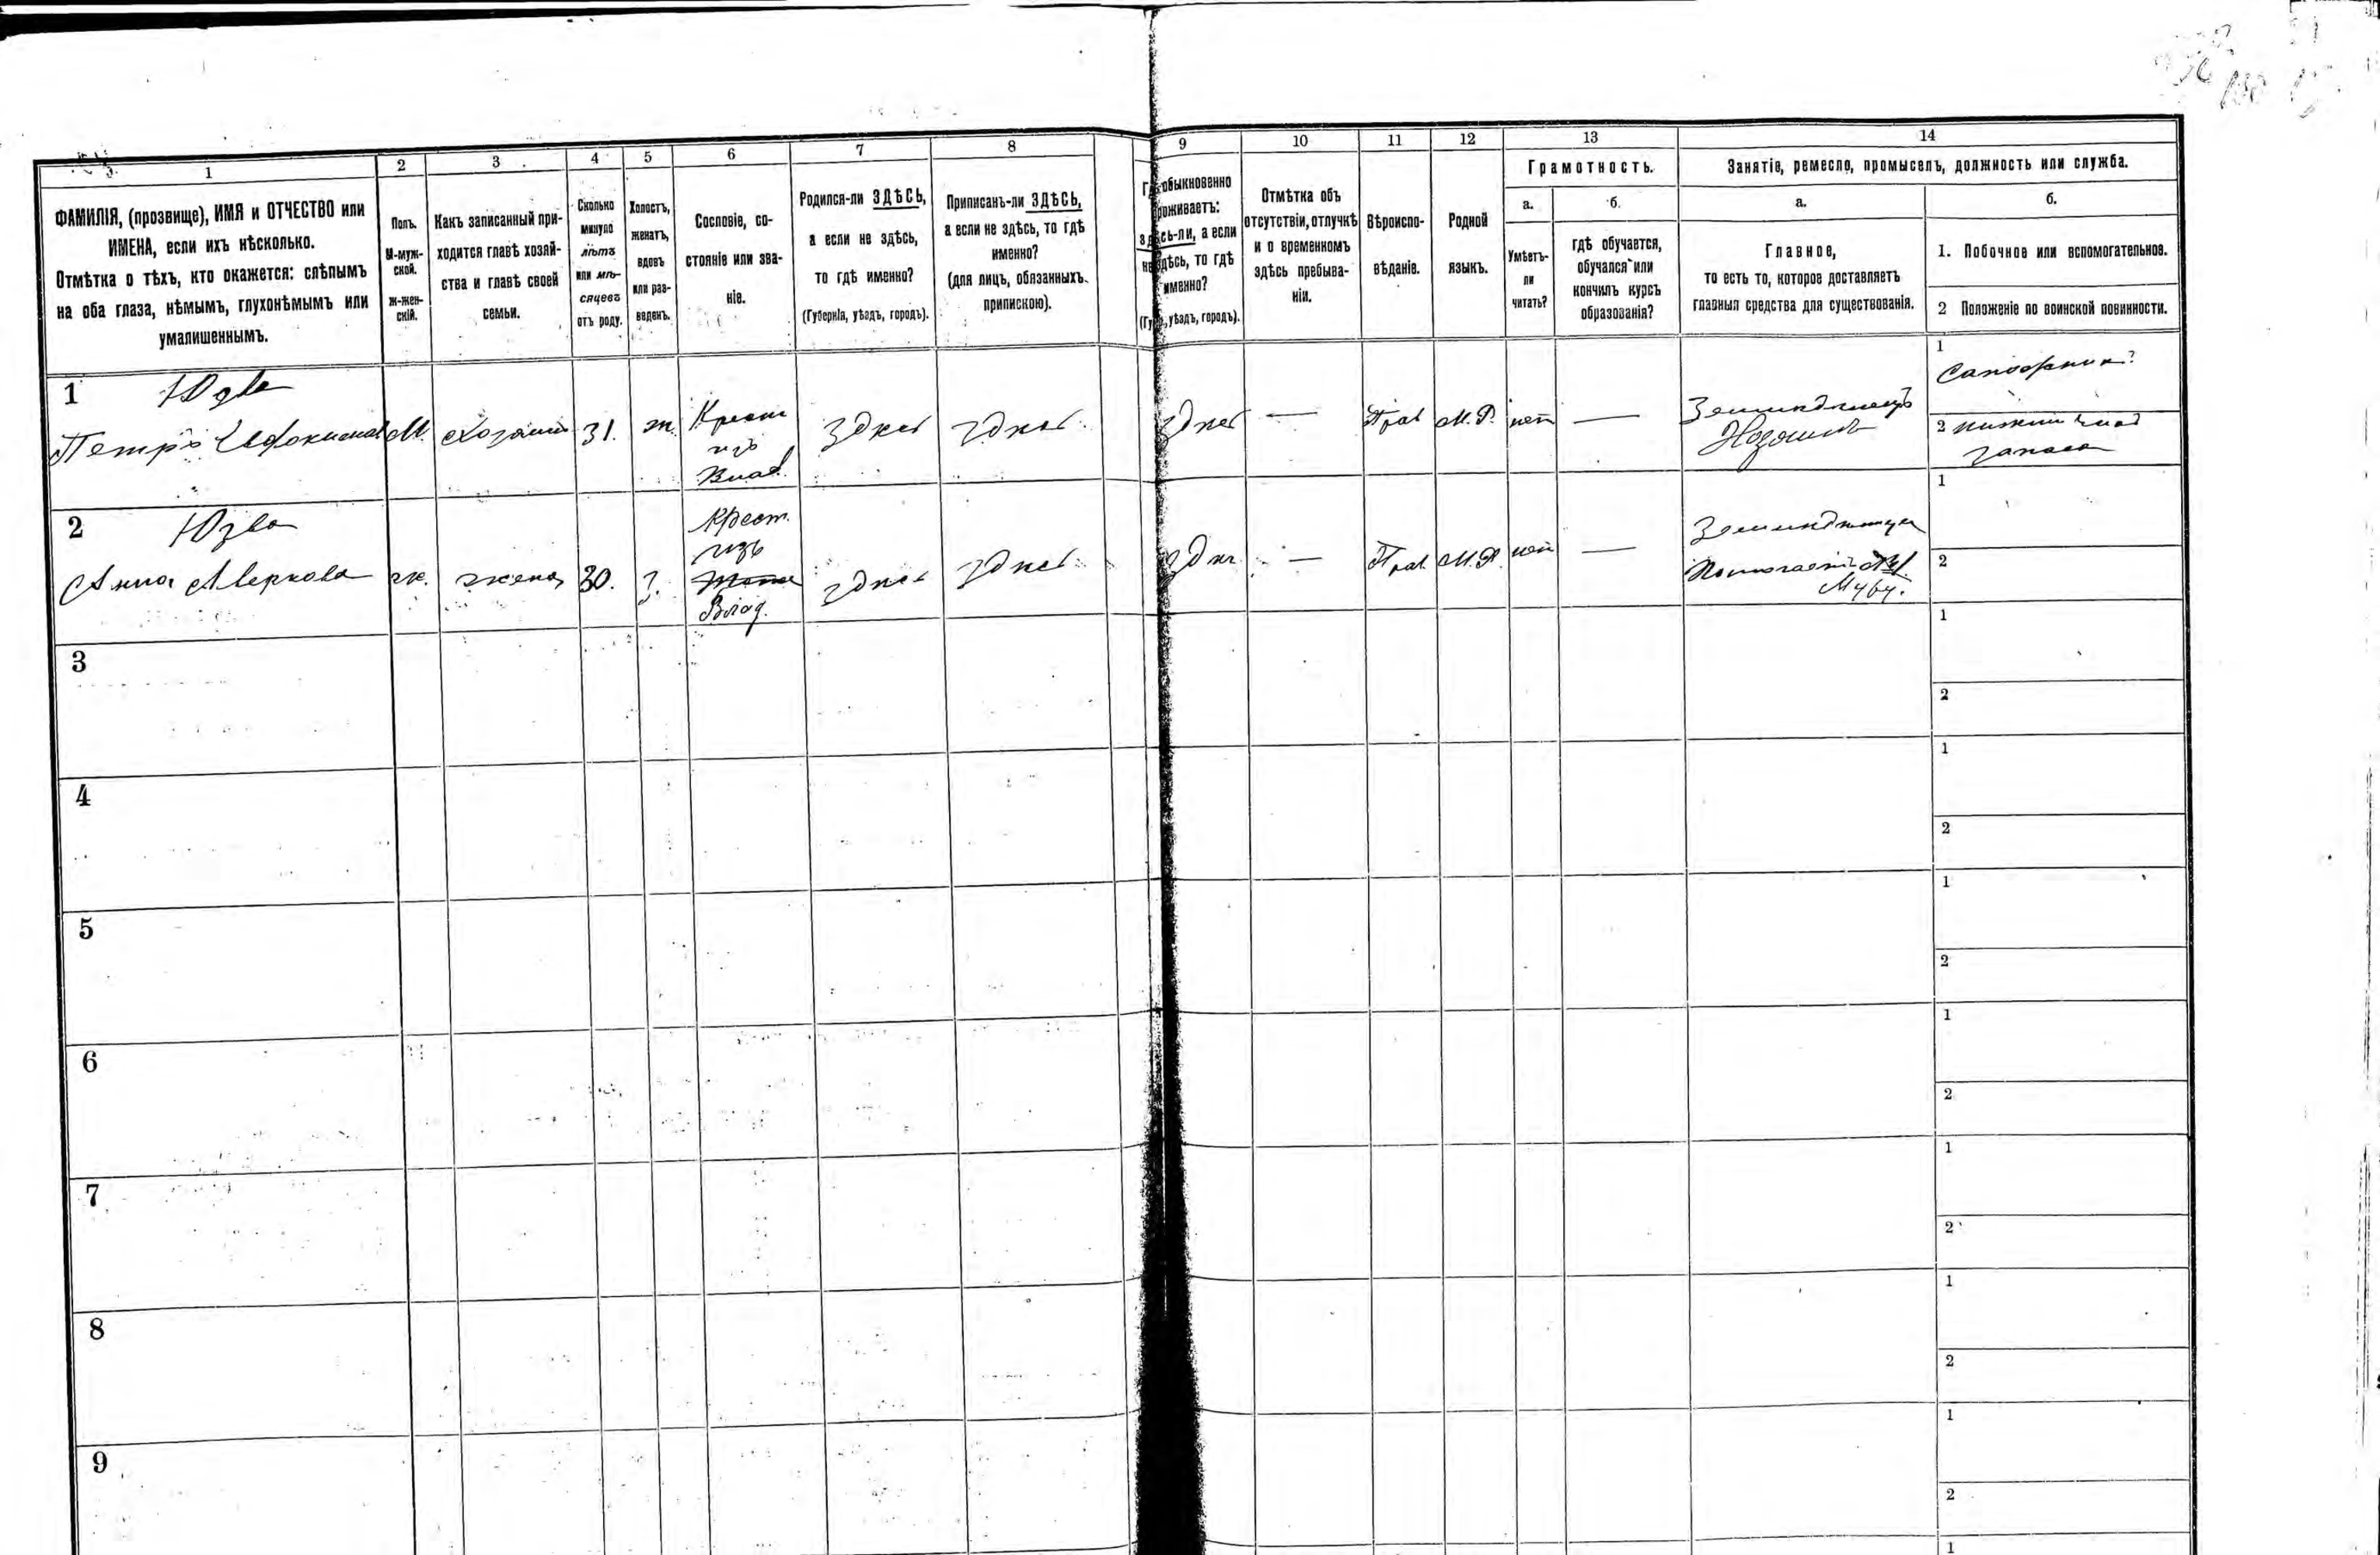 1 2 3 4 5 6 7 8 9 10 11 12 13 14
ФАМИЛІЯ, (прозвище), ИМЯ и ОТЧЕСТВО или
ИМЕНА, если ихъ нѣсколько.
Отмѣтка о тѣхъ, кто окажется: слѣпымъ
на оба глаза, нѣмымъ, глухонѣмымъ или
умалишеннымъ.
Полъ.
М-муж-
ской.
Ж-жен-
скій.
Какъ записанный при-
ходится главѣ хозяй-
ства и главѣ своей
семьи.
Сколько
минуло
лѣтъ
или мѣ-
сяцевъ
отъ роду.
Холостъ,
женатъ,
вдовъ
или раз-
веденъ.
Сословіе, со-
стояніе или зва-
ніе.
Родился-ли ЗДѢСЬ,
а если не здѣсь,
то гдѣ именно?
(Губернія, уѣздъ, городъ).
Приписанъ-ли ЗДѢСЬ,
а если не здѣсь, то гдѣ
именно?
(для лицъ, обязанныхъ
припискою).
обыкновенно
проживаетъ:
здѣсь-ли, а если
не здѣсь, то гдѣ
именно?
уѣздъ, городъ).
Отмѣтка объ
отсутствіи, отлучкѣ
и о временномъ
здѣсь пребыва-
ніи.
Вѣроиспо-
вѣданіе.
Родной
языкъ.
Грамотность.
а.
Умѣетъ-
ли
читать?
б.
гдѣ обучается,
обучался или
кончилъ курсъ
образованія?
Занятіе, ремесло, промыселъ, должность или служба.
а.
Главное,
то есть то, которое доставляетъ
главныя средства для существованія.
б.
1. Побочное или вспомогательное.
2 Положеніе по воинской повинности.
1
Петръ М. Хозяинъ 31. ж. Крест
изъ
Влад.
здѣсь здѣсь здѣсь — Прав М. Р. нѣтъ —
Земледѣлецъ
Хозяинъ
1
2 нижній чинъ
запаса
2 Юзва
Анна ж. жена 30. З. Крест.
изъ
Влад.
здѣсь здѣсь здѣ — Прав М. Р. нѣтъ —
Помогаетъ
Мужу.
1
2
3
1
2
4
1
2
5
1
2
6
1
2
7
1
2
8
1
2
9
1
2
1